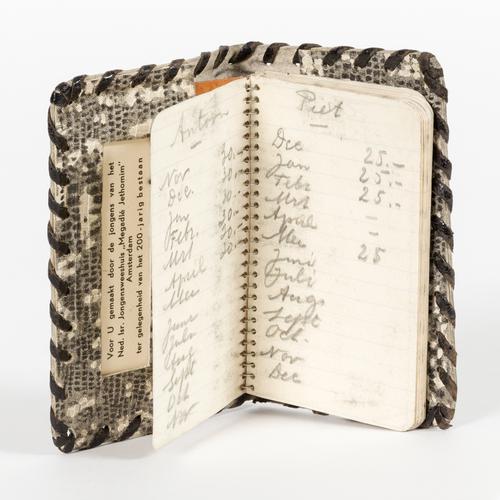 Voor U gemaakt door de jongens van het
Ned. Isr. Jongensweeshuis „Megadlé Jethomim"
Amsterdam
ter gelegenheid van het 200-jarig bestaan
Antoon
Nov 30.-
Dec. 30.-
Jan 30.-
Febr 30.-
Mrt 30.-
April
Mei
Juni
Juli
Aug
Sept
Oct
Nov
Piet
Dec 25.-
Jan 25.-
Febr 25.-
Mrt -
April -
Mei 25
Juni
Juli
Aug.
Sept
Oct.
Nov
Dec